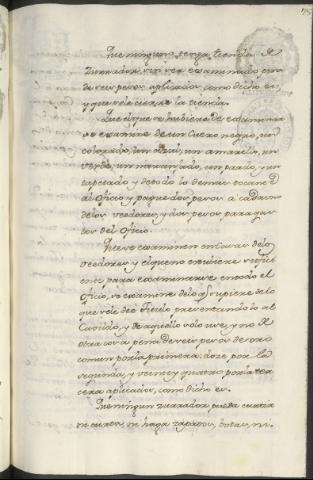 Que ninguno tenga tienda de
Zurrador, sin ser examinado, pena
de seis pesos aplicados, como dicho es,
y que se le cierre la tienda.
Que el que se hubiere de examinar
se examine de un Cuero negro, un
colorado, un azul, un amarillo, un
verde, un naranjado, un pardo, y un
tapetado y de todo lo demas tocante
al oficio, y pague dos pesos a cada uno
de los veedores, y dos pesos para gas-
tos del oficio.
Que se examinen en Casas de los
veedores y el que no estubiere suficiente
para examinarse en todo el
oficio, se examine de lo q.e supiere de lo
que se le dé Titulo presentandolo al
Cavildo, y de aquello solo use, y no de
otra cosa pena de seis pesos de oro
comun por la primera: doze por la
segunda, y veinte y quatro por la ter-
cera aplicados, como dicho es.
Que ningun zurrador pueda curtir
ni cueros, ni haga zapatos, botas, ni